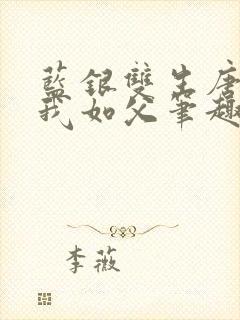 藍銀雙生唐
我如父筆趣
李薇